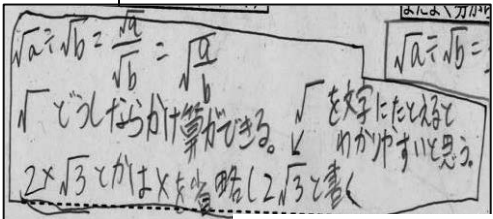 √a÷√b=√a/√b=√a/b
√どうしならかけ算ができる。
√を文字にたとえると
わかりやすいと思う。
2×√3とかは×を省略し2√3と書く
√a÷√b=